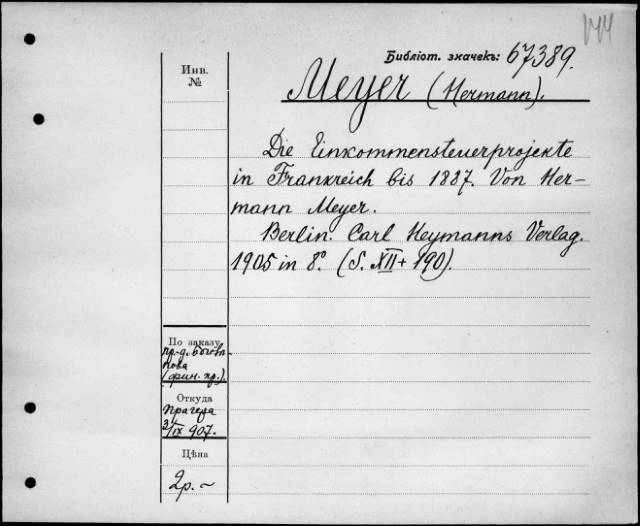 Библіот. значекъ: 67389.
Инв.
№
Meyer (Hermann).
Die Einkommensteuerprojekte
in Frankreich bis 1887. Von Her-
mann Meyer.
Berlin. Carl Heymanns Verlag.
1905 in 8° (S. XII + 190).
По заказу
пр-д.
(фин. пр.).
Откуда
Прагера
3/IX 907.
Цѣна
2р. ~